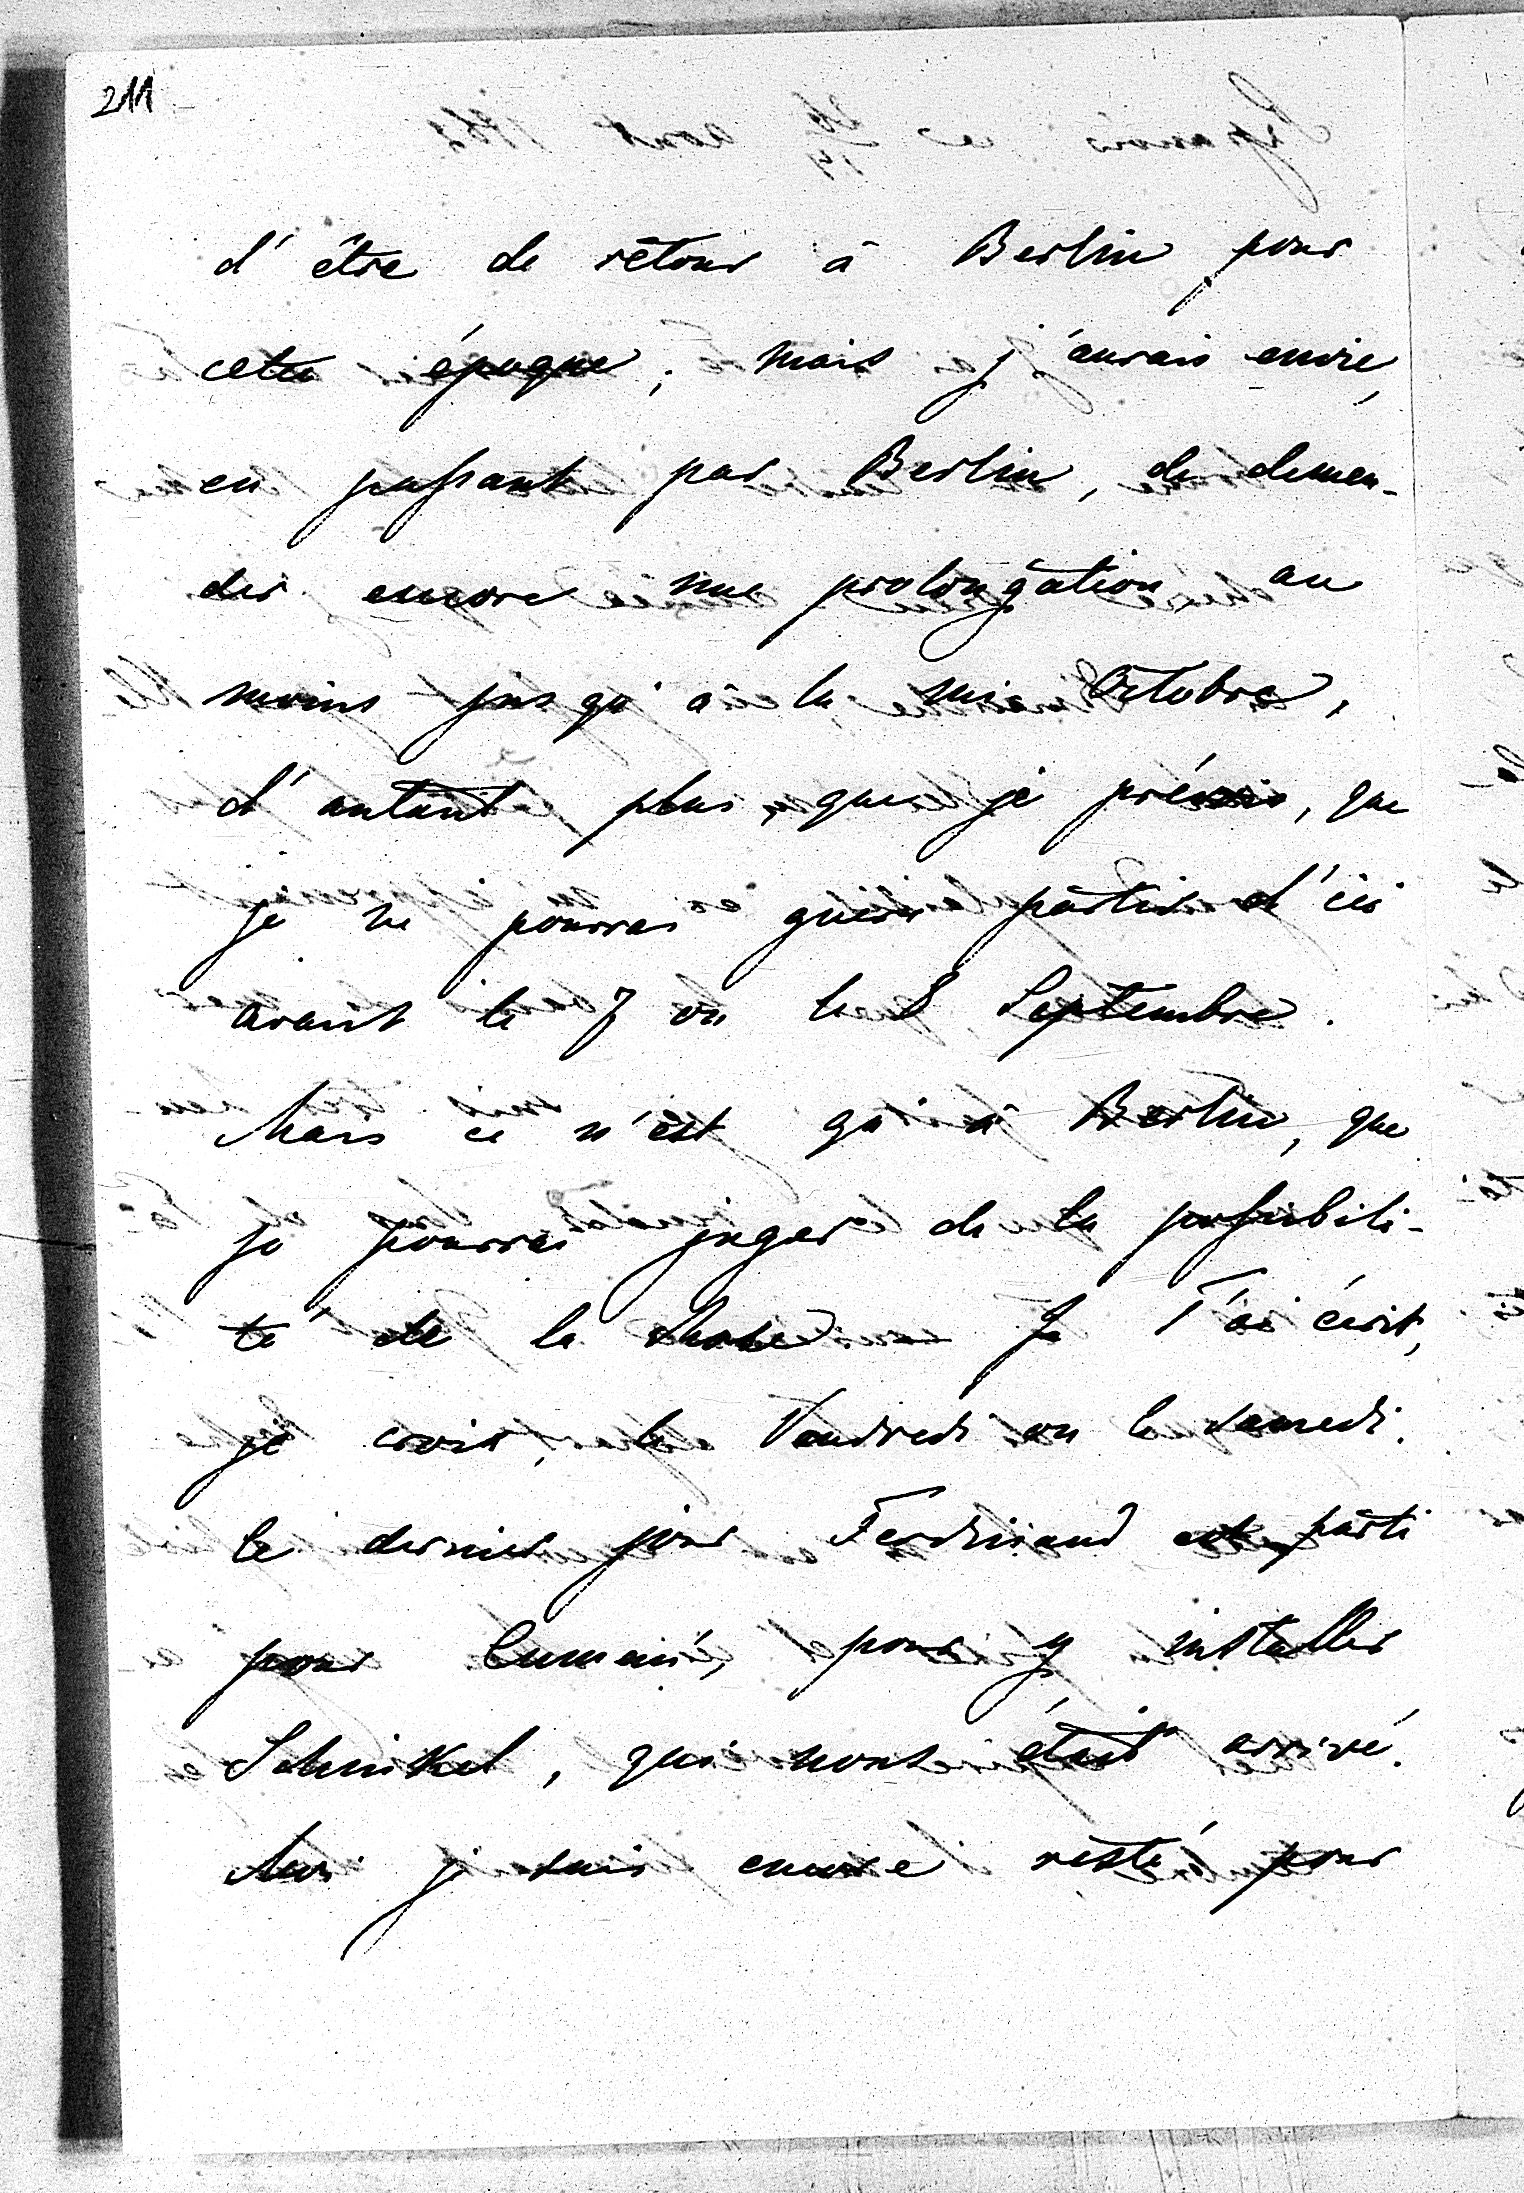 211
d'être de retour à Berlin pour
cette époque; mais j'aurais envie,
en passant par Berlin, de deman-
der encore une prolongation au
moins jusqu'à la mi Octobre,
d'autant plus, que je prévois, que
je ne pourrai guère partir d'ici
avant le 7 ou le 8 Septembre.
Mais ce n'est qu'à Berlin, que
je pourrai juger de la possibili-
té de la chose. Je T'ai écrit,
je crois, le Vendredi ou le Samedi.
Le dernier jour Ferdinand est parti
pour pour y installer
Schinkel, qui nous était arrivé.
Moi je suis encore resté pour